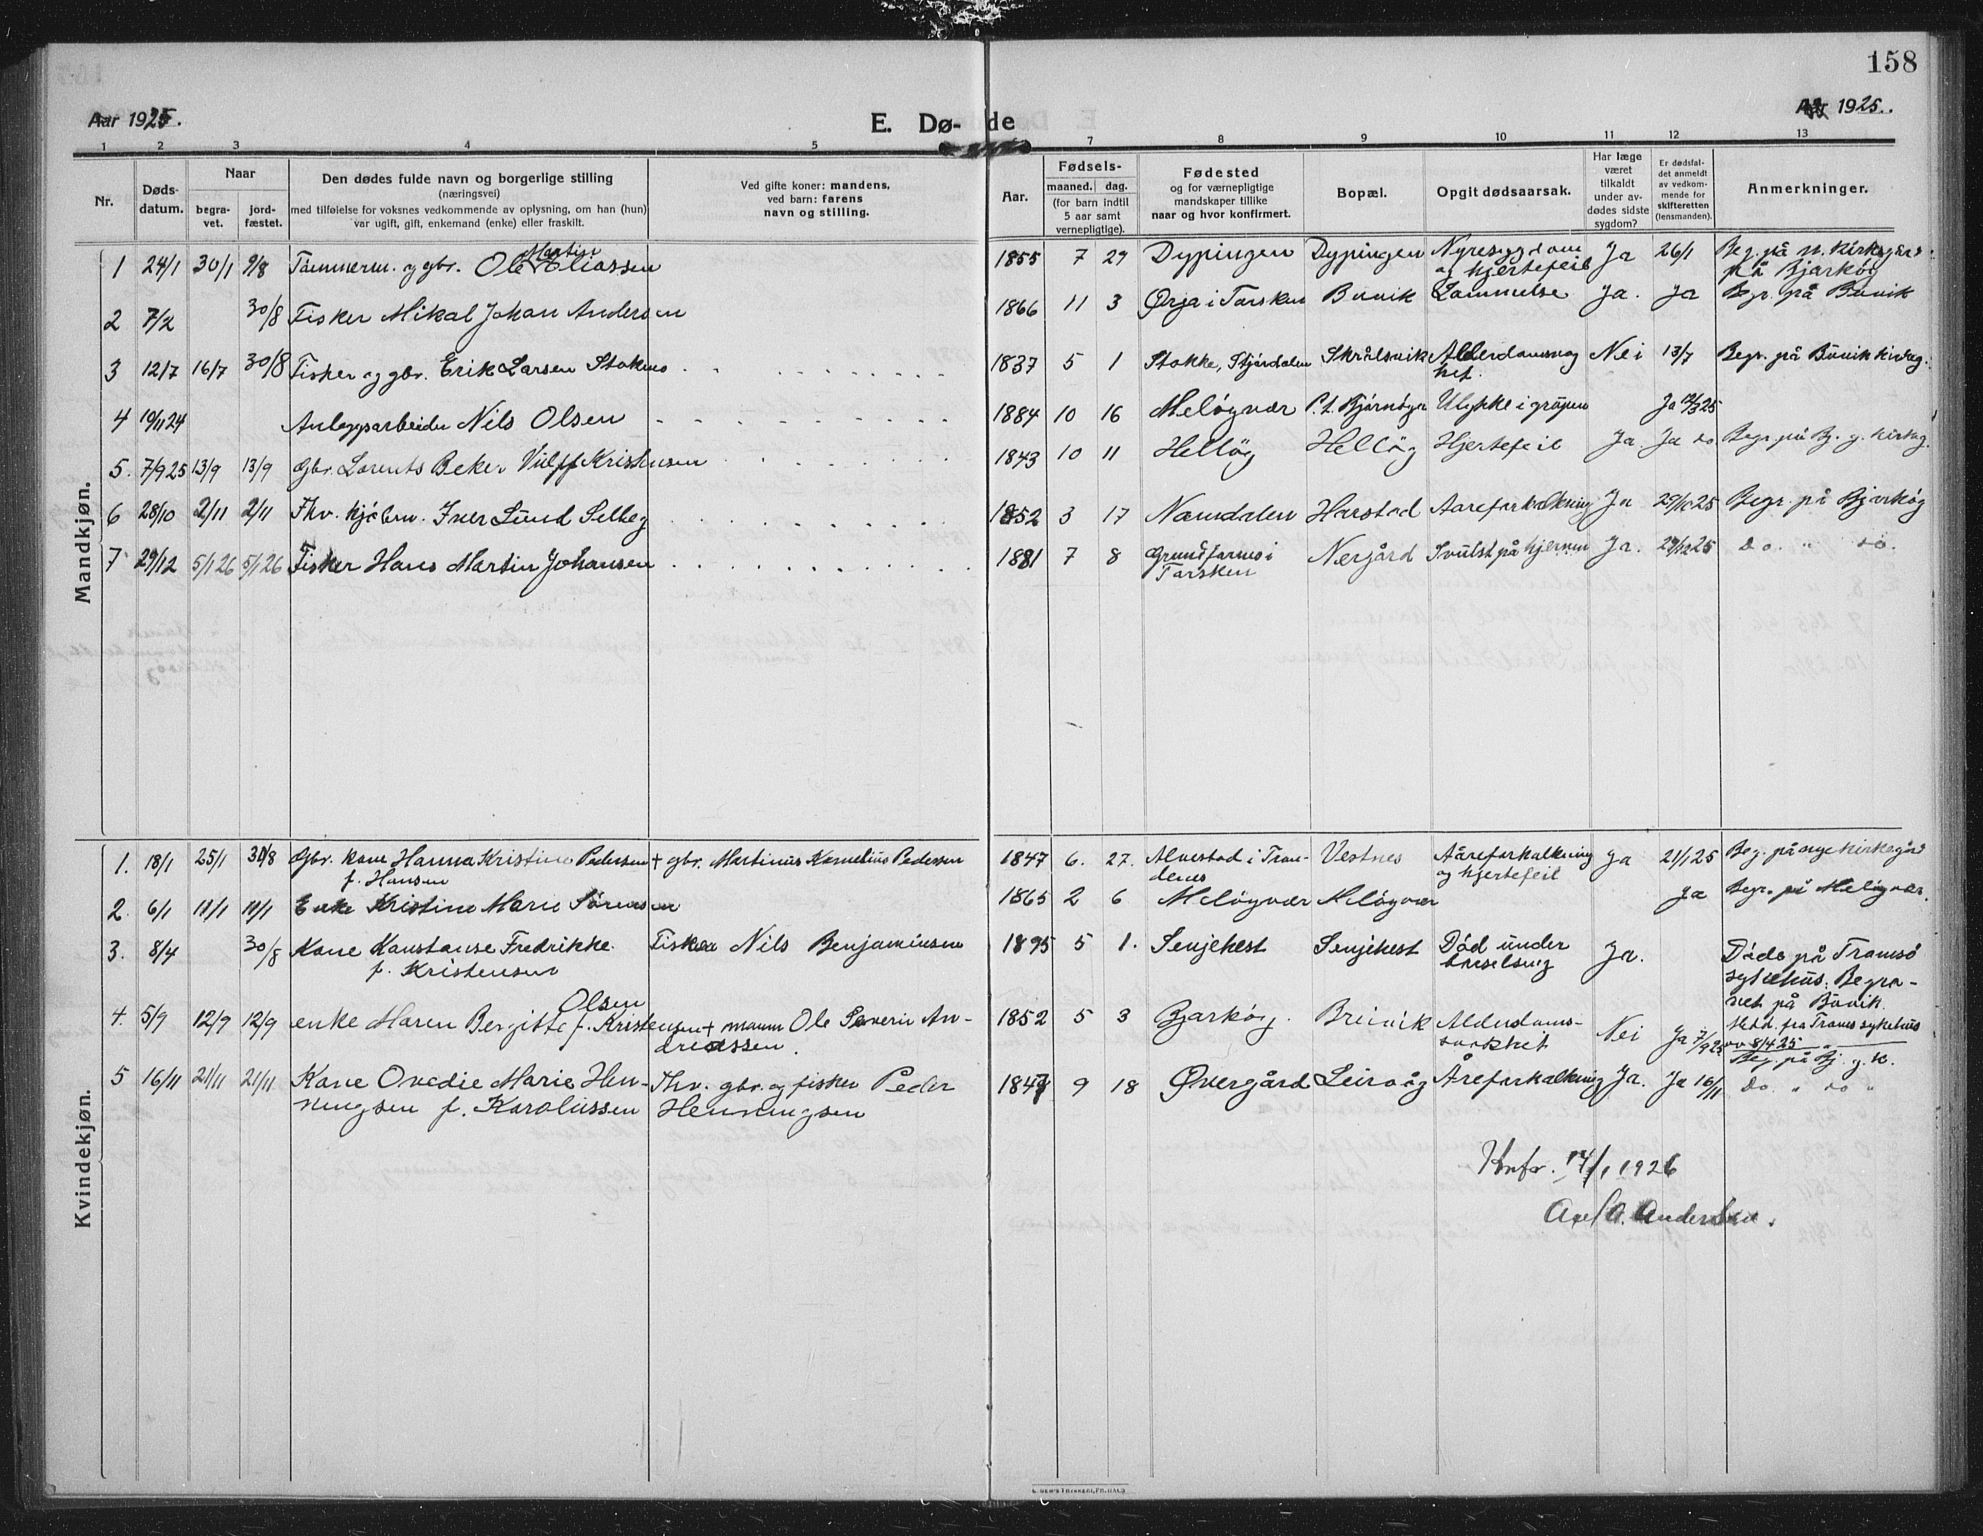 158
Aar 1925.
E. Dø- de
Aar 1925.
1 2 3 4 5 7 8 9 10 11 12 13
Nr.
Døds-
datum.
Naar
begra-
vet.
jord-
fæstet.
Den dødes fulde navn og borgerlige stilling
(næringsvei)
med tilføielse for voksnes vedkommende av oplysning, om han (hun)
var ugift, gift, enkemand (enke) eller fraskilt.
Ved gifte koner: mandens,
ved barn: farens
navn og stilling.
Aar.
Fødsels-
maaned. dag.
(for barn indtil
5 aar samt
vernepligtige).
Fødested
og for værnepligtige
mandskaper tillike
naar og hvor konfirmert.
Bopæl.
Opgit dødsaarsak.
Har læge
været
tilkaldt
under av-
dødes sidste
sygdom?
Er dødsfal-
det anmeldt
av vedkom-
mende for
skifteretten
(lensmanden).
Anmerkninger.
Mandkjøn.
1 24/1 30/1 9/8 Tømmerm. og gbr. Ole Martin Eliassen 1855 7 29 Dypingen Dypingen Nyresygdom og hjertefeil Ja 26/1 Beg. på n. kirkegård på Bjarkøy
2 7/2 30/8 Fisker Mikal Johan Andersen 1866 11 3 Ørja i Torsken Buvik Lammelse Ja. Ja Begr. på Buvik
3 12/7 16/7 30/8 Fisker og gbr. Erik Larsen Stokmo 1837 5 1 Stokke, Stjørdalen Skrålsvik Alderdomsvaghet. Nei 13/7 Begr. på Buvik kirkeg.
4 19/11 24 Anleggsarbeider Nils Olsen 1884 10 16 Meløyvær P.t. Bjørnøya Ulykke i gruven Ja 12/3 25
5. 7/9 25 13/9 13/9 Gbr. Lorents Beker Vulff Kristensen 1843 10 11 Helløy Helløy Hjertefeil Ja. Ja do Begr. på Bj. g. kirkeg.
6 28/10 2/11 2/11 Fhv. kjøbm. Iver Lund Selbeg 1852 3 17 Namdalen Harstad Aareforkalkning Ja 29/10 25 Begr. på Bjarkøy
7 29/12 5/1 26 5/1 26 Fisker Hans Martin Johansen 1881 7 8 Grundfarnes i Torsken Nergård Svulst på hjernen Ja. 29/12 25 do. " do.
Kvindekjøn.
1. 18/1 25/1 30/8 Gbr. kone Hanna Kristine Pedersen f. Hansen + gbr. Martinus Kornelius Pedersen 1847 6. 27. Alvestad i Trondenes Vestnes Aareforkalkning og hjertefeil Ja 21/1 25 Beg. på nye kirkegård
2. 6/1 11/1 11/1 Enke Kristine Marie Sørensen 1865 2 6 Meløyvær Meløyvær Ja Begr. på Meløyvær.
3. 8/4 30/8 Kone Konstanse Fredrikke. f. Kristensen Fisker Nils Benjaminsen 1895 5 1. Senjehest Senjehest Død under barselseng Ja. Døde på Tromsø sykehus. Begravet på Buvik. Medd. fra Troms sykehus av 8/4 25
4. 5/9 12/9 12/9 enke Maren Bergitte Olsen f. Kristensen + mann Ole Severin Andreassen. 1852 5 3 Bjarkøy. Breivik Alderdomssvakhet Nei Ja 7/9 25 Beg. på Bj. g. k.
5 16/11 21/11 21/11 Kone Ovedie Marie Henningsen f. Karolussen Fhv. gbr. og fisker Peder Henningsen 1847 9 18 Øvergård Leirvåg Åreforkalkning Ja. Ja 16/11 do. " do "
Konfr. 14/1 1926
Axel A. Anderssen.